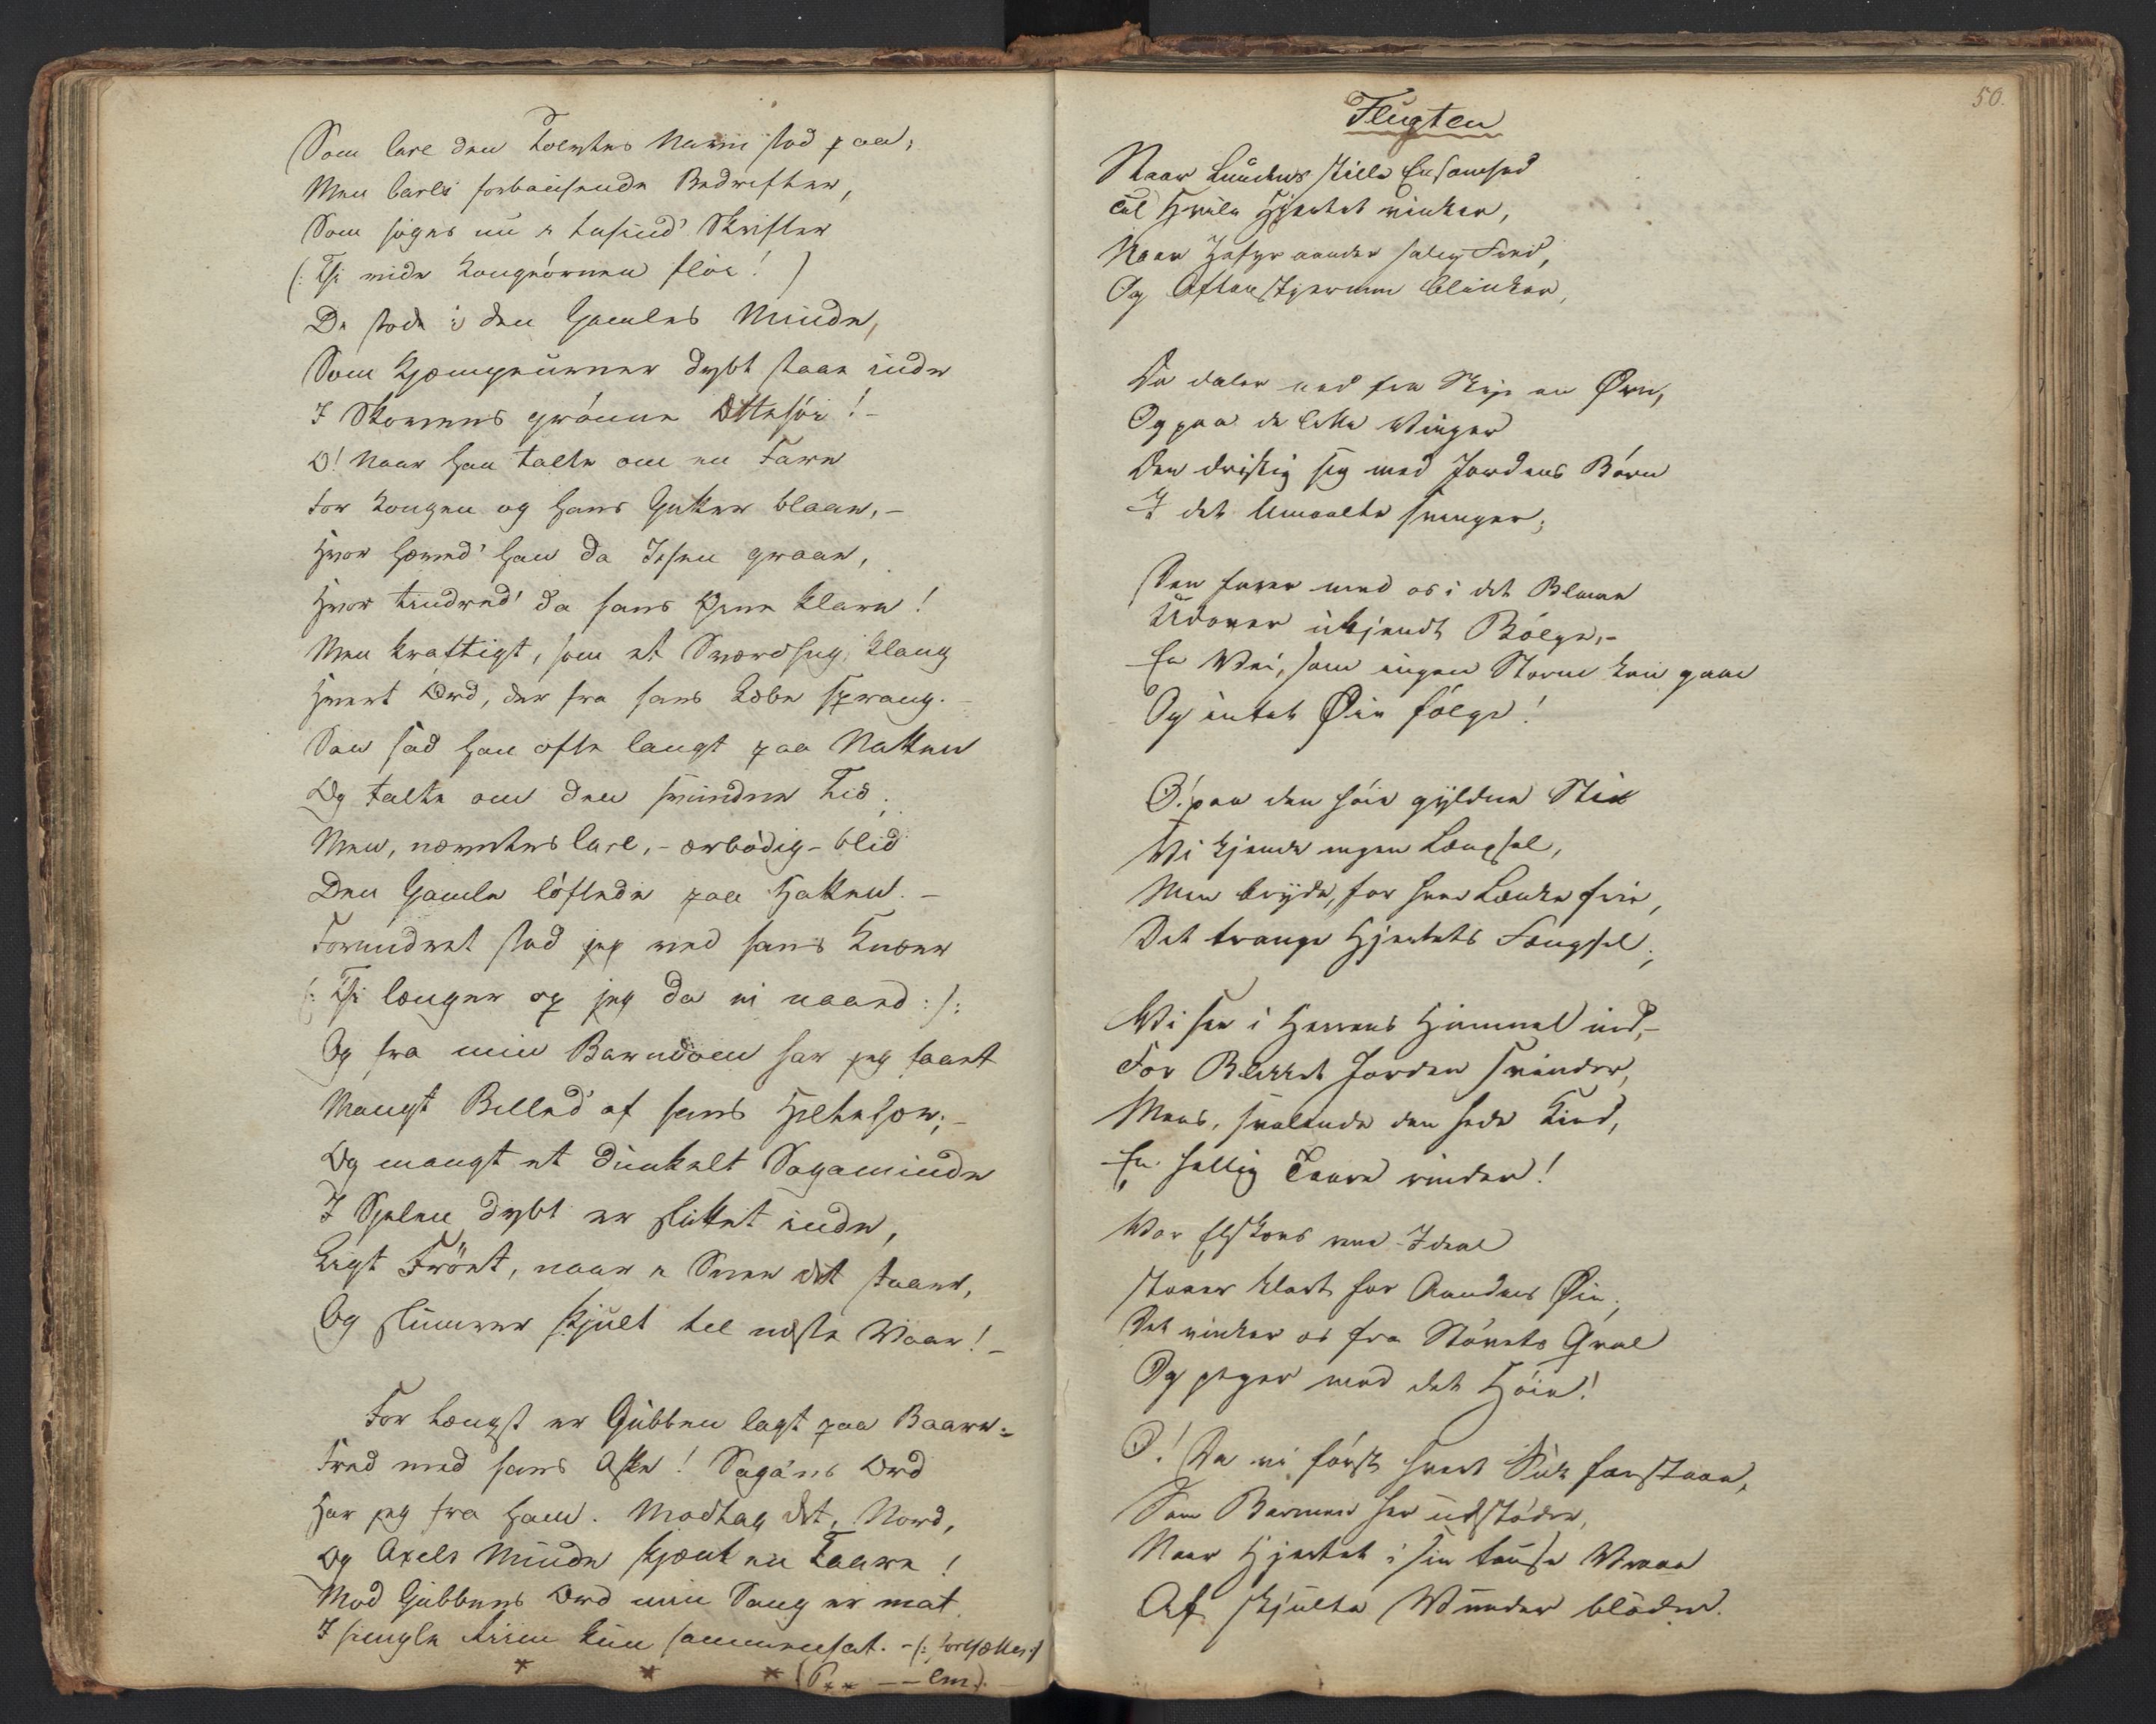 Som Carl den Tolvtes Navn stod paa;
Men Carls forbausende Bedrifter,
Som søges nu i tusind' Skrifter
(: Thi vide Kongeörnen flöi! )
De stode i den Gamles Minde,
Som Kjæmpeurner dybt staae inde
I Skovens grönne Ættehöi! -
O! naar han talte om en Fare
For Kongen og hans Gutter blaae, -
Hvor hæved' han da Issen graae,
Hvor tindred' da hans Øine klare!
Men kraftigt, som et Sværdhug, klang
Hvert Ord, der fra hans Læbe sprang. -
Saa sad han ofte langt paa Natten
Og talte om den svundne Tid;
Men, nævntes Carl, - ærbödig-blid
Den Gamle löftede paa Hatten. -
Forundret stod jeg ved hans Knæer
(: Thi længer op jeg da ei naaed :):
Og fra min Barndom har jeg faaet
Mangt Billed' af hans Heltehær; -
Og mangt et dunkelt Sagaminde
I Sjelen dybt er fluttet inde,
Ligt Fröet, naar i Sneen det staaer,
Og slumrer skjult til næste Vaar! -
For længst er Gubben lagt paa Baare: -
Fred med hans Aske! Saga'ns Ord
Har jeg fra ham. Modtag det, Nord,
Og Axels Minde skjænk en Taare!
Mod Gubbens Ord min Sang er mat
I simple Riim kun sammensat. - (: Fortsættes :)
* * * (P** -- lm).
50.
Flugten
Naar Lundens stille Eensomhed
Til Hvile Hjertet vinker,
Naar Zefyr aander salig Fred,
Og Aftenstjernen blinker,
Da daler ned fra Sky en Ørn,
Og paa de lette Vinger
Den dristig sig med Jordens Börn
I det Umaalte svinger;
Den farer med os i det Blaae
Udover ukjendt Bölge, -
En Vei, som ingen Storm kan gaae
Og intet Øie fölge!
O! paa den höie gyldne Stie
Vi kjende ingen Længsel,
Men bryde, for hver Lænke frie,
Det trange Hjertets Fængsel;
Vi see i Herrens Himmel ind, -
For Blikket Jorden svinder,
Mens, svalende den hede Kind,
En hellig Taare rinder!
Vor Elskovs rene Ideal
Staaer klart for Aandens Øie,
Det vinker os fra Stövets Qval
Og peger mod det Höie!
O! Da vi först hvert Suk forstaae,
Som Barmen her udstöder,
Naar Hjertet i sin tause Vraae
Af skjulte Wunder blöder.